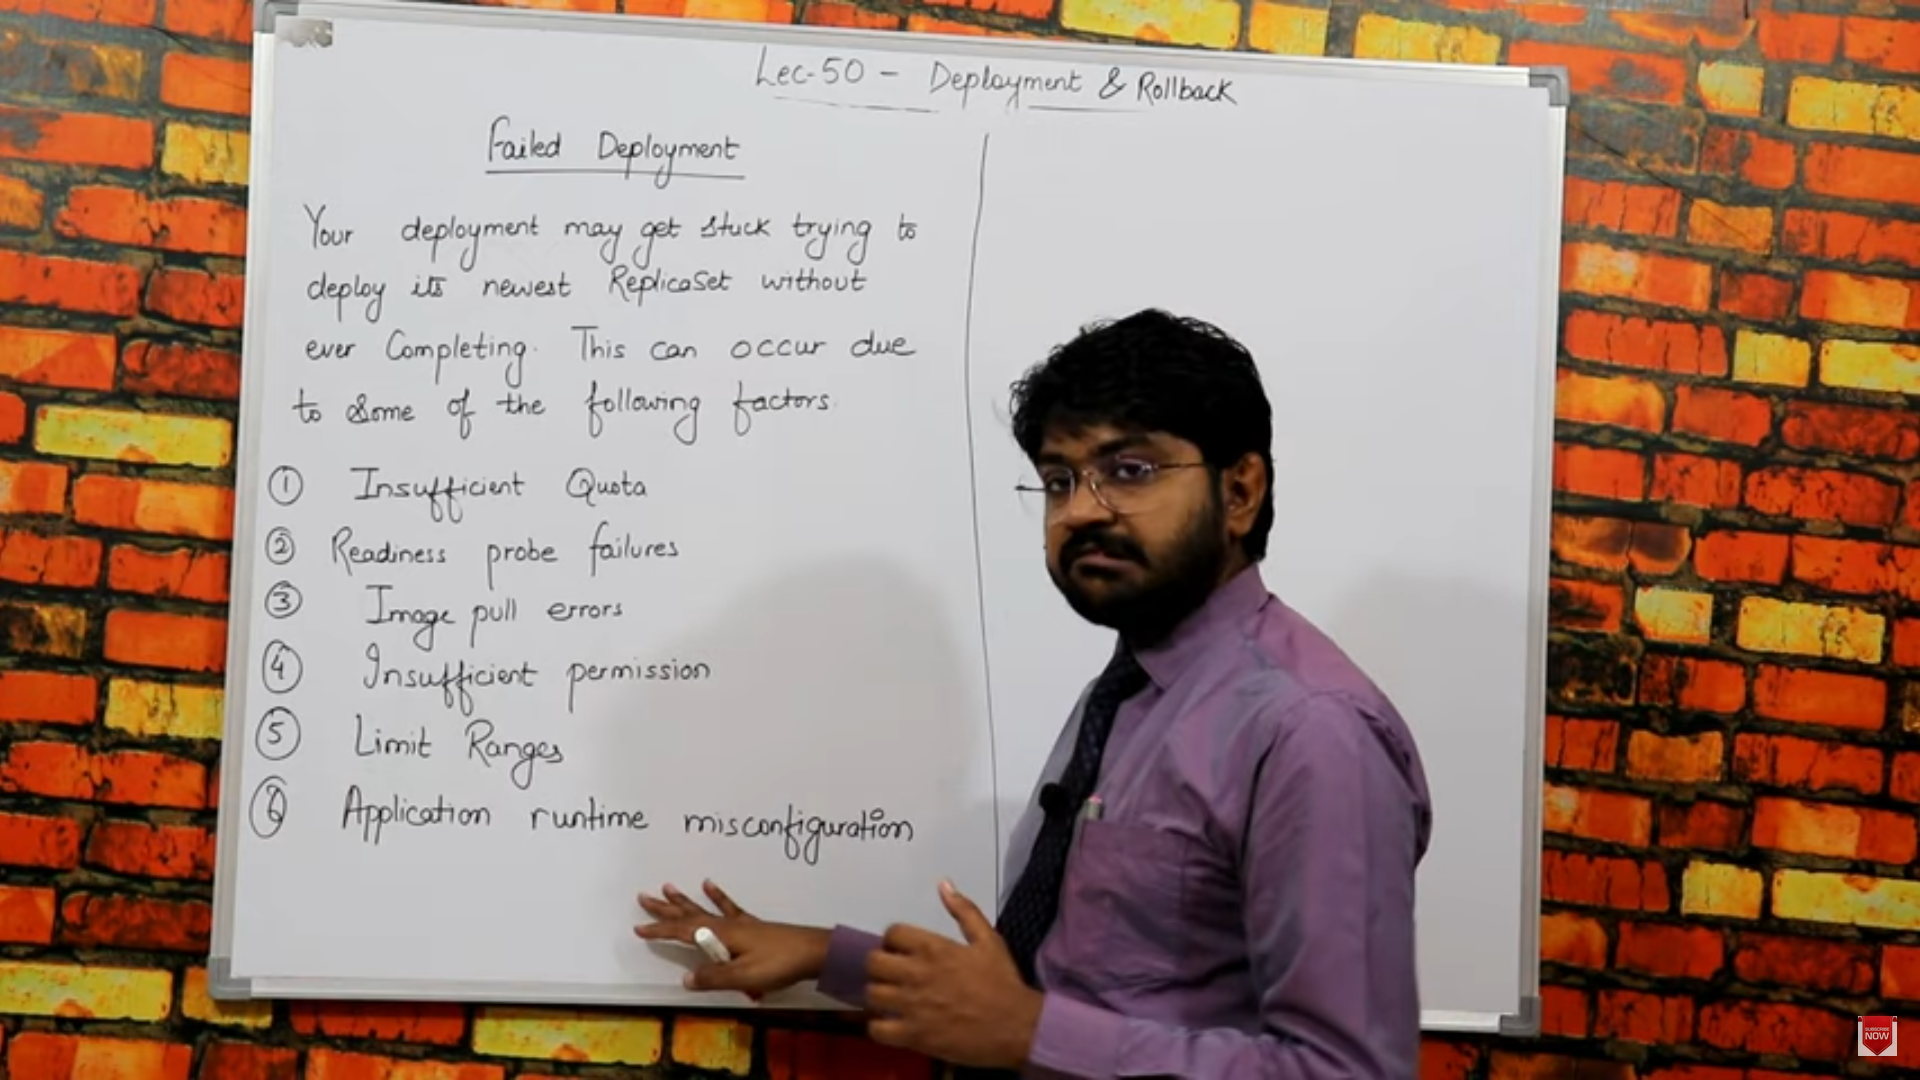 Lec-50 - Deployment & Rollback
Failed Deployment
Your deployment may get stuck trying to
deploy its newest ReplicaSet without
ever Completing. This can occur due
to some of the following factors.
① Insufficient Quota
② Readiness probe failures
③ Image pull errors
④ Insufficient permission
⑤ Limit Ranges
⑥ Application runtime misconfiguration
SUBSCRIBE
NOW